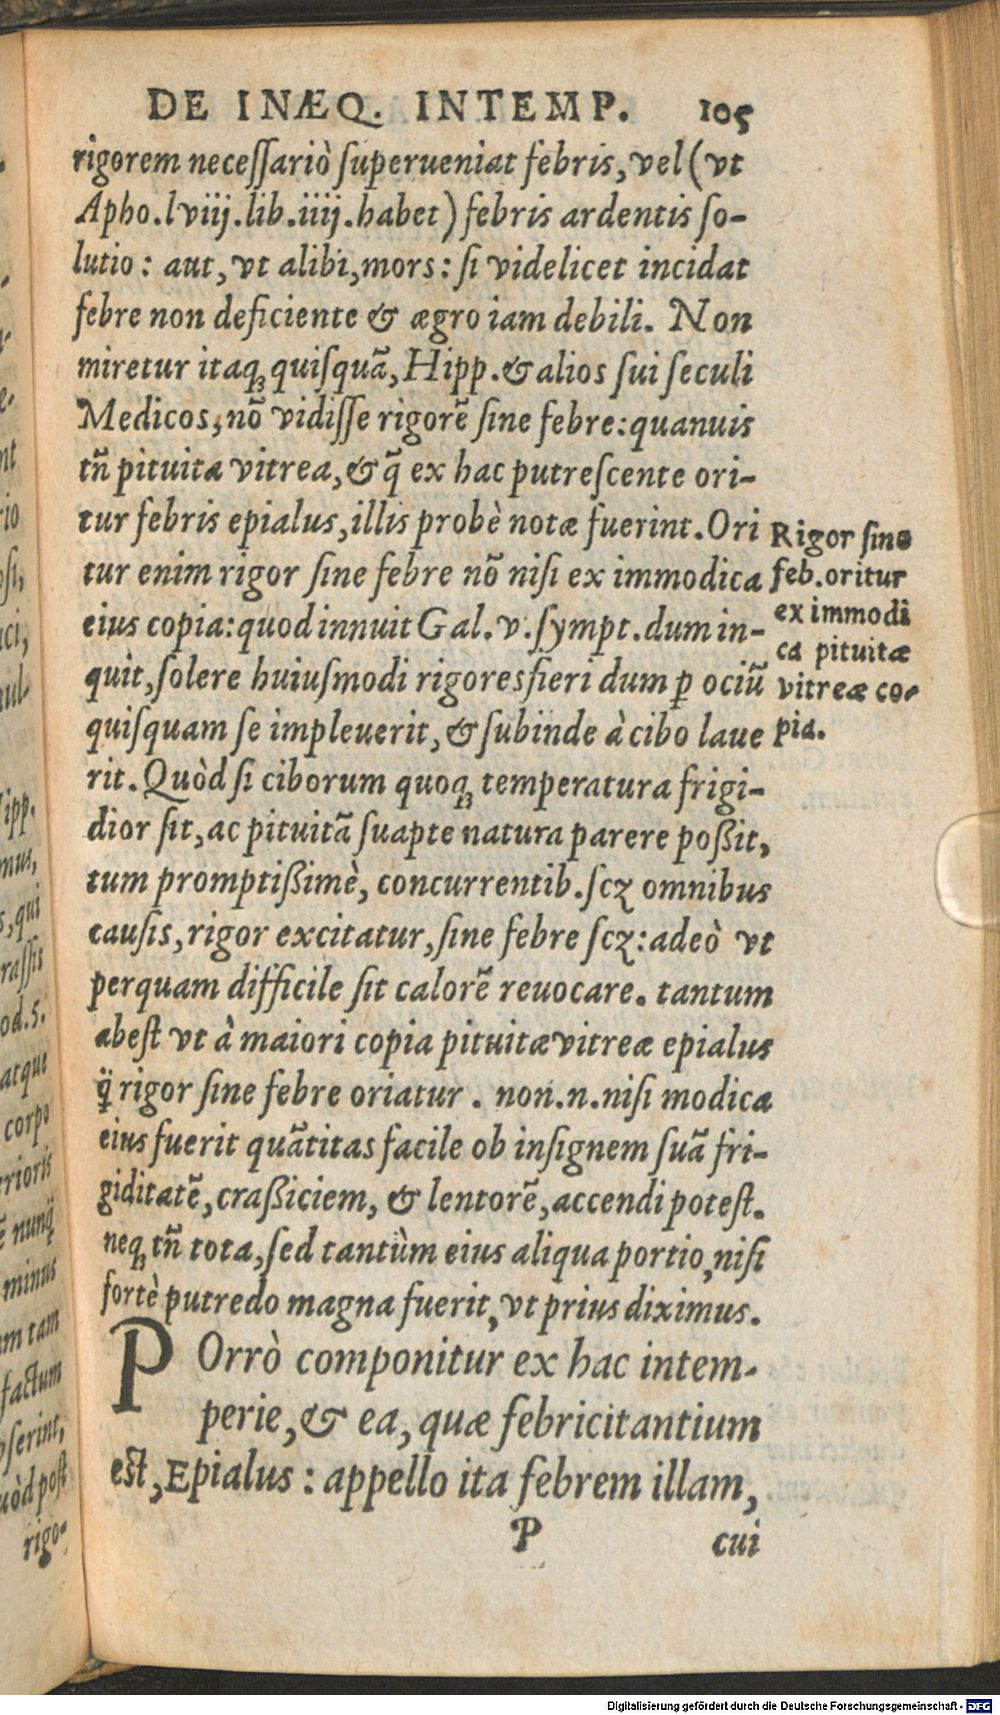 DE INÆQ. INTEMP. 105
rigorem neceſſariò ſuperueniat febris, vel (vt
Apho. lviij. lib. iiij. habet) febris ardentis ſo-
lutio: aut, vt alibi, mors: ſi videlicet incidat
febre non deficiente & ægro iam debili. Non
miretur itaq̨ quiſquā, Hipp. & alios ſui ſeculi
Medicos, nō vidiſſe rigorē ſine febre: quanuis
tn̄ pituita vitrea, & q̄ ex hac putreſcente ori-
tur febris epialus, illis probè notæ fuerint. Ori
tur enim rigor ſine febre nō niſi ex immodica
eius copia: quod innuit Gal. v. ſympt. dum in-
quit, ſolere huiuſmodi rigores fieri dum ꝑ ociū
quiſquam ſe impleuerit, & ſubinde à cibo laue
rit. Quòd ſi ciborum quoq̨ temperatura frigi-
dior ſit, ac pituitā ſuapte natura parere poßit,
tum promptißimè, concurrentib. ſcꝫ omnibus
cauſis, rigor excitatur, ſine febre ſcꝫ: adeò vt
perquam difficile ſit calorē reuocare. tantum
abeſt vt à maiori copia pituitæ vitreæ epialus
q̈ rigor ſine febre oriatur. non. n. niſi modica
eius fuerit quātitas facile ob inſignem ſuā fri-
giditatē, craßiciem, & lentorē, accendi poteſt.
neq̨ tn̄ tota, ſed tantùm eius aliqua portio, niſi
fortè putredo magna fuerit, vt prius diximus.
POrrò componitur ex hac intem-
perie, & ea, quæ febricitantium
eſt, Epialus: appello ita febrem illam,
P cui
Rigor ſine
feb. oritur
ex immodi
ca pituitæ
vitreæ co-
pia.
nt
rio
oſi,
uci,
Hipp.
mus,
s, qui
raſſis
od. 5.
atque
corpo
erioris
ē nunq̈
minus
am tam
factum
oſerint,
uòd poſt
rigo-
Digitalisierung gefördert durch die Deutsche Forschungsgemeinschaft - DFG